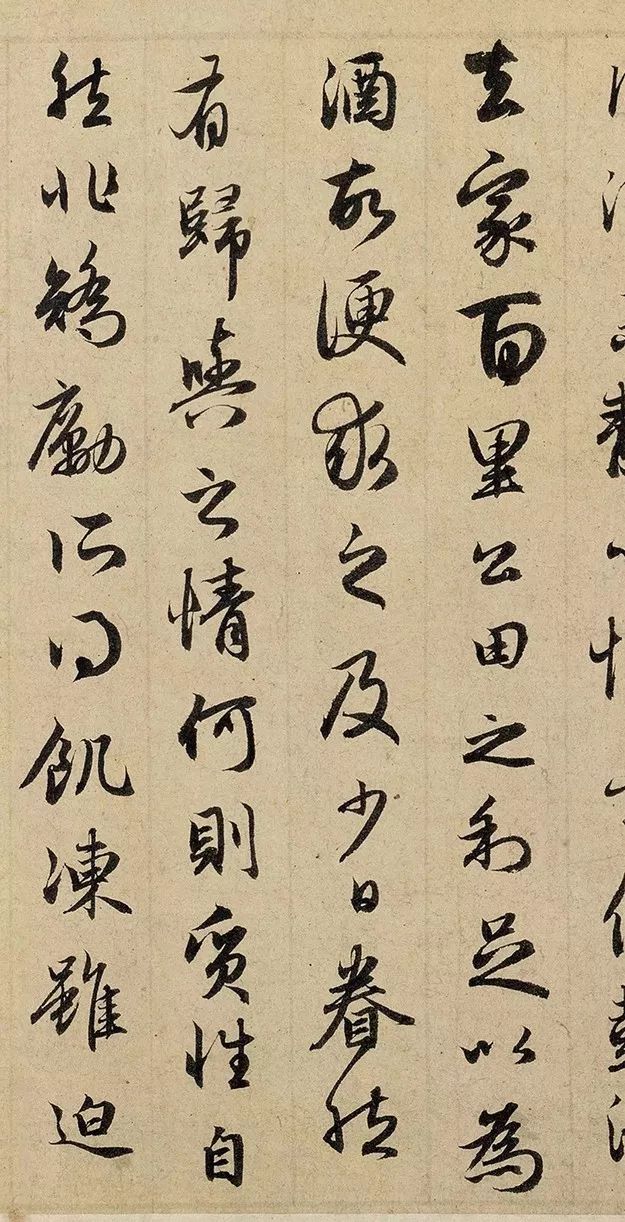 去家百里公田之利足以為
酒故便求之及少日眷然
有歸與之情何則質性自
然非矯勵所得飢凍雖迫